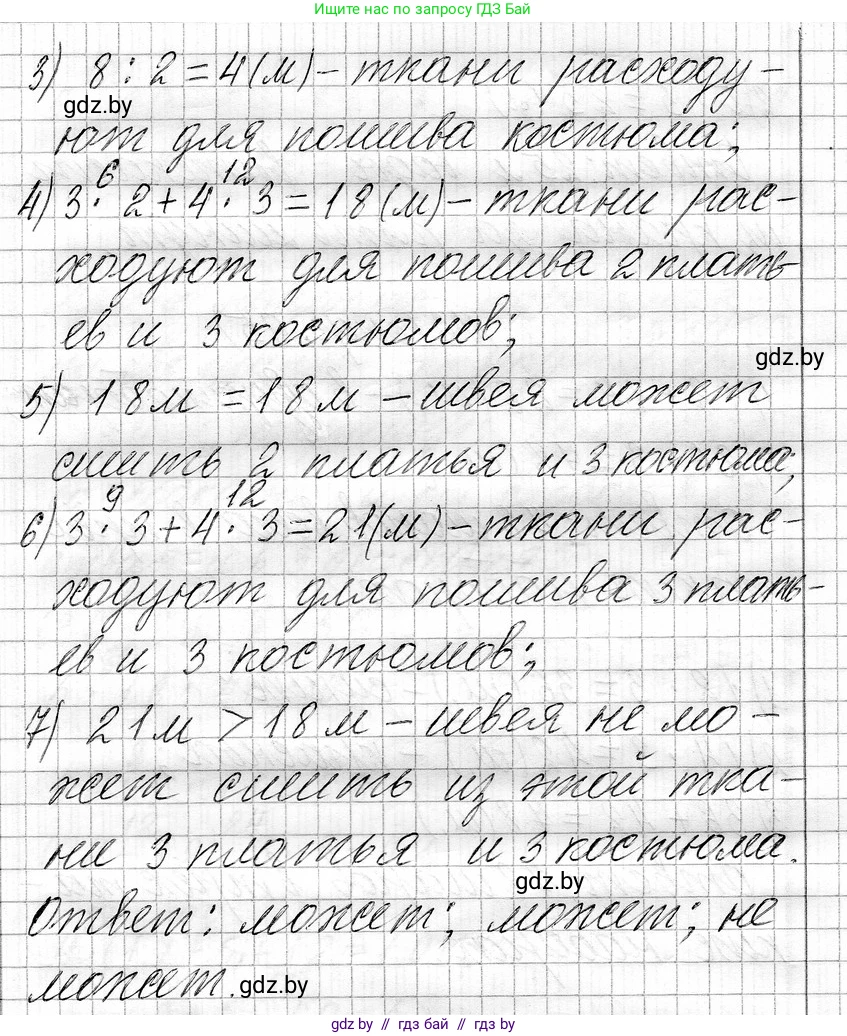 Ищите по запросу ГДЗ Бай
3) 8 : 2 = 4 (м) – ткани расходу-
gdz.by
ют для пошива костюма;
6 12
4) 3 · 2 + 4 · 3 = 18 (м) – ткани рас-
ходуют для пошива 2 плать-
ев и 3 костюмов;
gdz.by
5) 18 м = 18 м – швея может
сшить 2 платья и 3 костюма;
9 12
6) 3 · 3 + 4 · 3 = 21 (м) – ткани рас-
ходуют для пошива 3 плать-
ев и 3 костюмов;
7) 21 м > 18 м – швея не мо-
жет сшить из этой тка-
ни 3 платья и 3 костюма.
gdz.by
Ответ: может; может; не
может.
gdz.by
gdz.by // гдз бай // гдз by